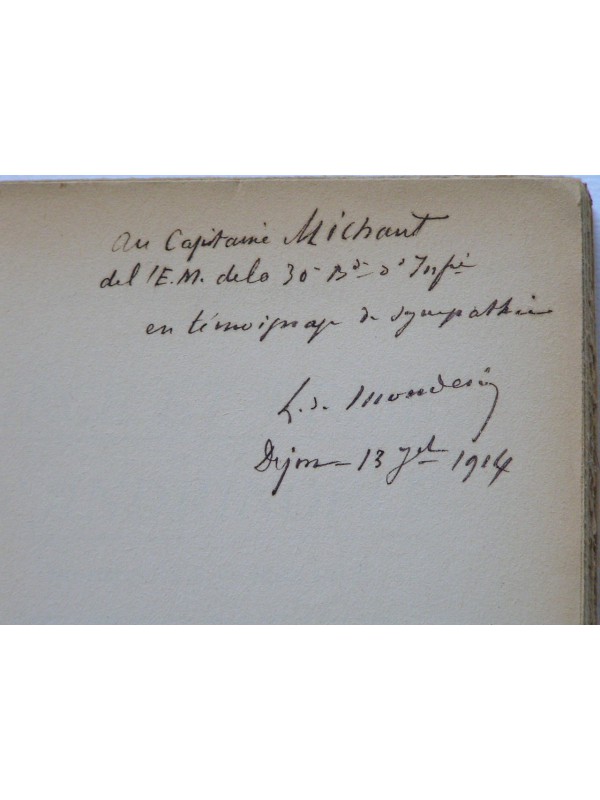 au Capitaine Michaut
de l'E.M. de la 30e Bde d'Infie
en témoignage de sympathie
L. de Mondésir
Dijon 13 Jet 1914